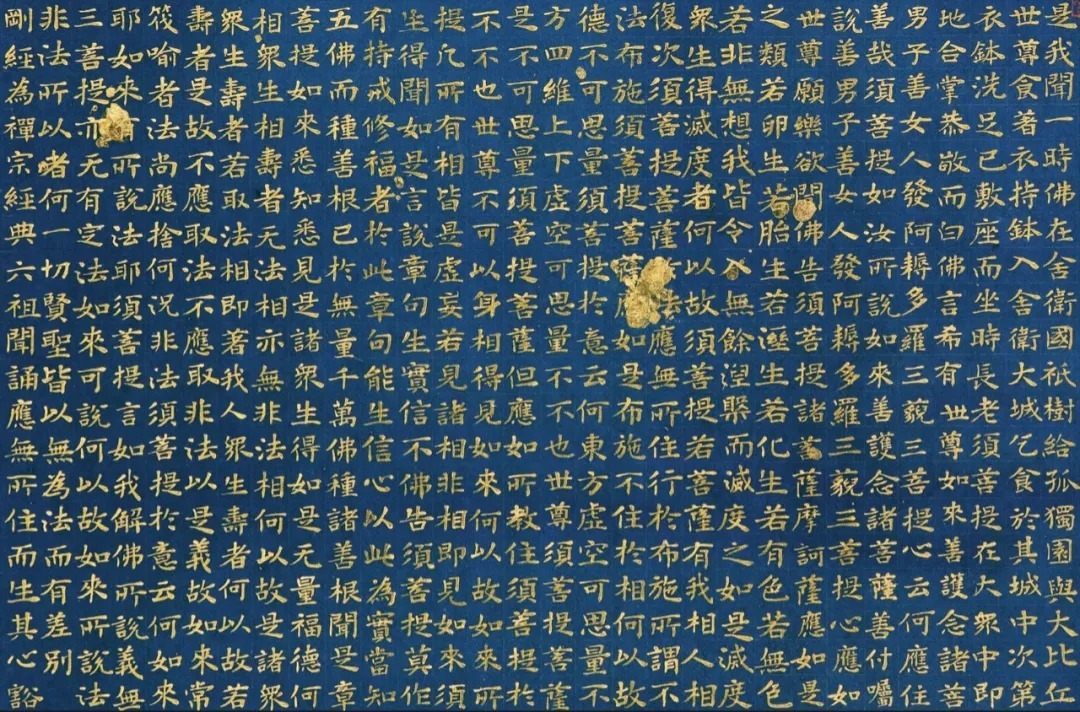 是我聞一時佛在舍衛國祇樹給孤獨園與大比丘
世尊食著衣持鉢入舍衛大城乞食於其城中次第
衣鉢洗足已敷座而坐時長老須菩提在大眾中即
地合掌恭敬而白佛言希有世尊如來善護念諸菩
男子善女人發阿耨多羅三藐三菩提心云何應住
善哉須菩提如汝所說如來善護念諸菩薩善付囑
說善男子善女人發阿耨多羅三藐三菩提心應如
世尊願樂欲聞佛告須菩提諸菩薩摩訶薩應如是
之類若卵生若胎生若濕生若化生若有色若無色
若非無想我皆令入無餘涅槃而滅度之如是滅度
眾生得滅度者何以故須菩提若菩薩有我相人相
復次須菩提菩薩於法應無所住行於布施所謂不
法布施須菩提菩薩應如是布施不住於相何以故
德不可思量須菩提於意云何東方虛空可思量不
方四維上下虛空可思量不不也世尊須菩提菩薩
是不可思量須菩提菩薩但應如所教住須菩提於
不不也世尊不可以身相得見如來何以故如來所
提凡所有相皆是虛妄若見諸相非相即見如來須
生得聞如是言說章句生實信不佛告須菩提莫作
有持戒修福者於此章句能生信心以此為實當知
五佛而種善根已於無量千萬佛種諸善根聞是章
菩提如來悉知悉見是諸眾生得如是无量福德何
相眾生相壽者无法相亦無非法相何以故是諸眾
眾生壽者若取法相即著我人眾生壽者何以故若
壽者是故不應取法不應取非法以是義故如來常
筏喻者法尚應捨何況非法須菩提於意云何如來
耶如來有所說法耶須菩提言如我解佛所說義無
三菩提亦无有定法如來可說何以故如來所說法
非法所以者何一切賢聖皆以無為法而有差別
剛經為禪宗經典六祖聞誦應無所住而生其心豁